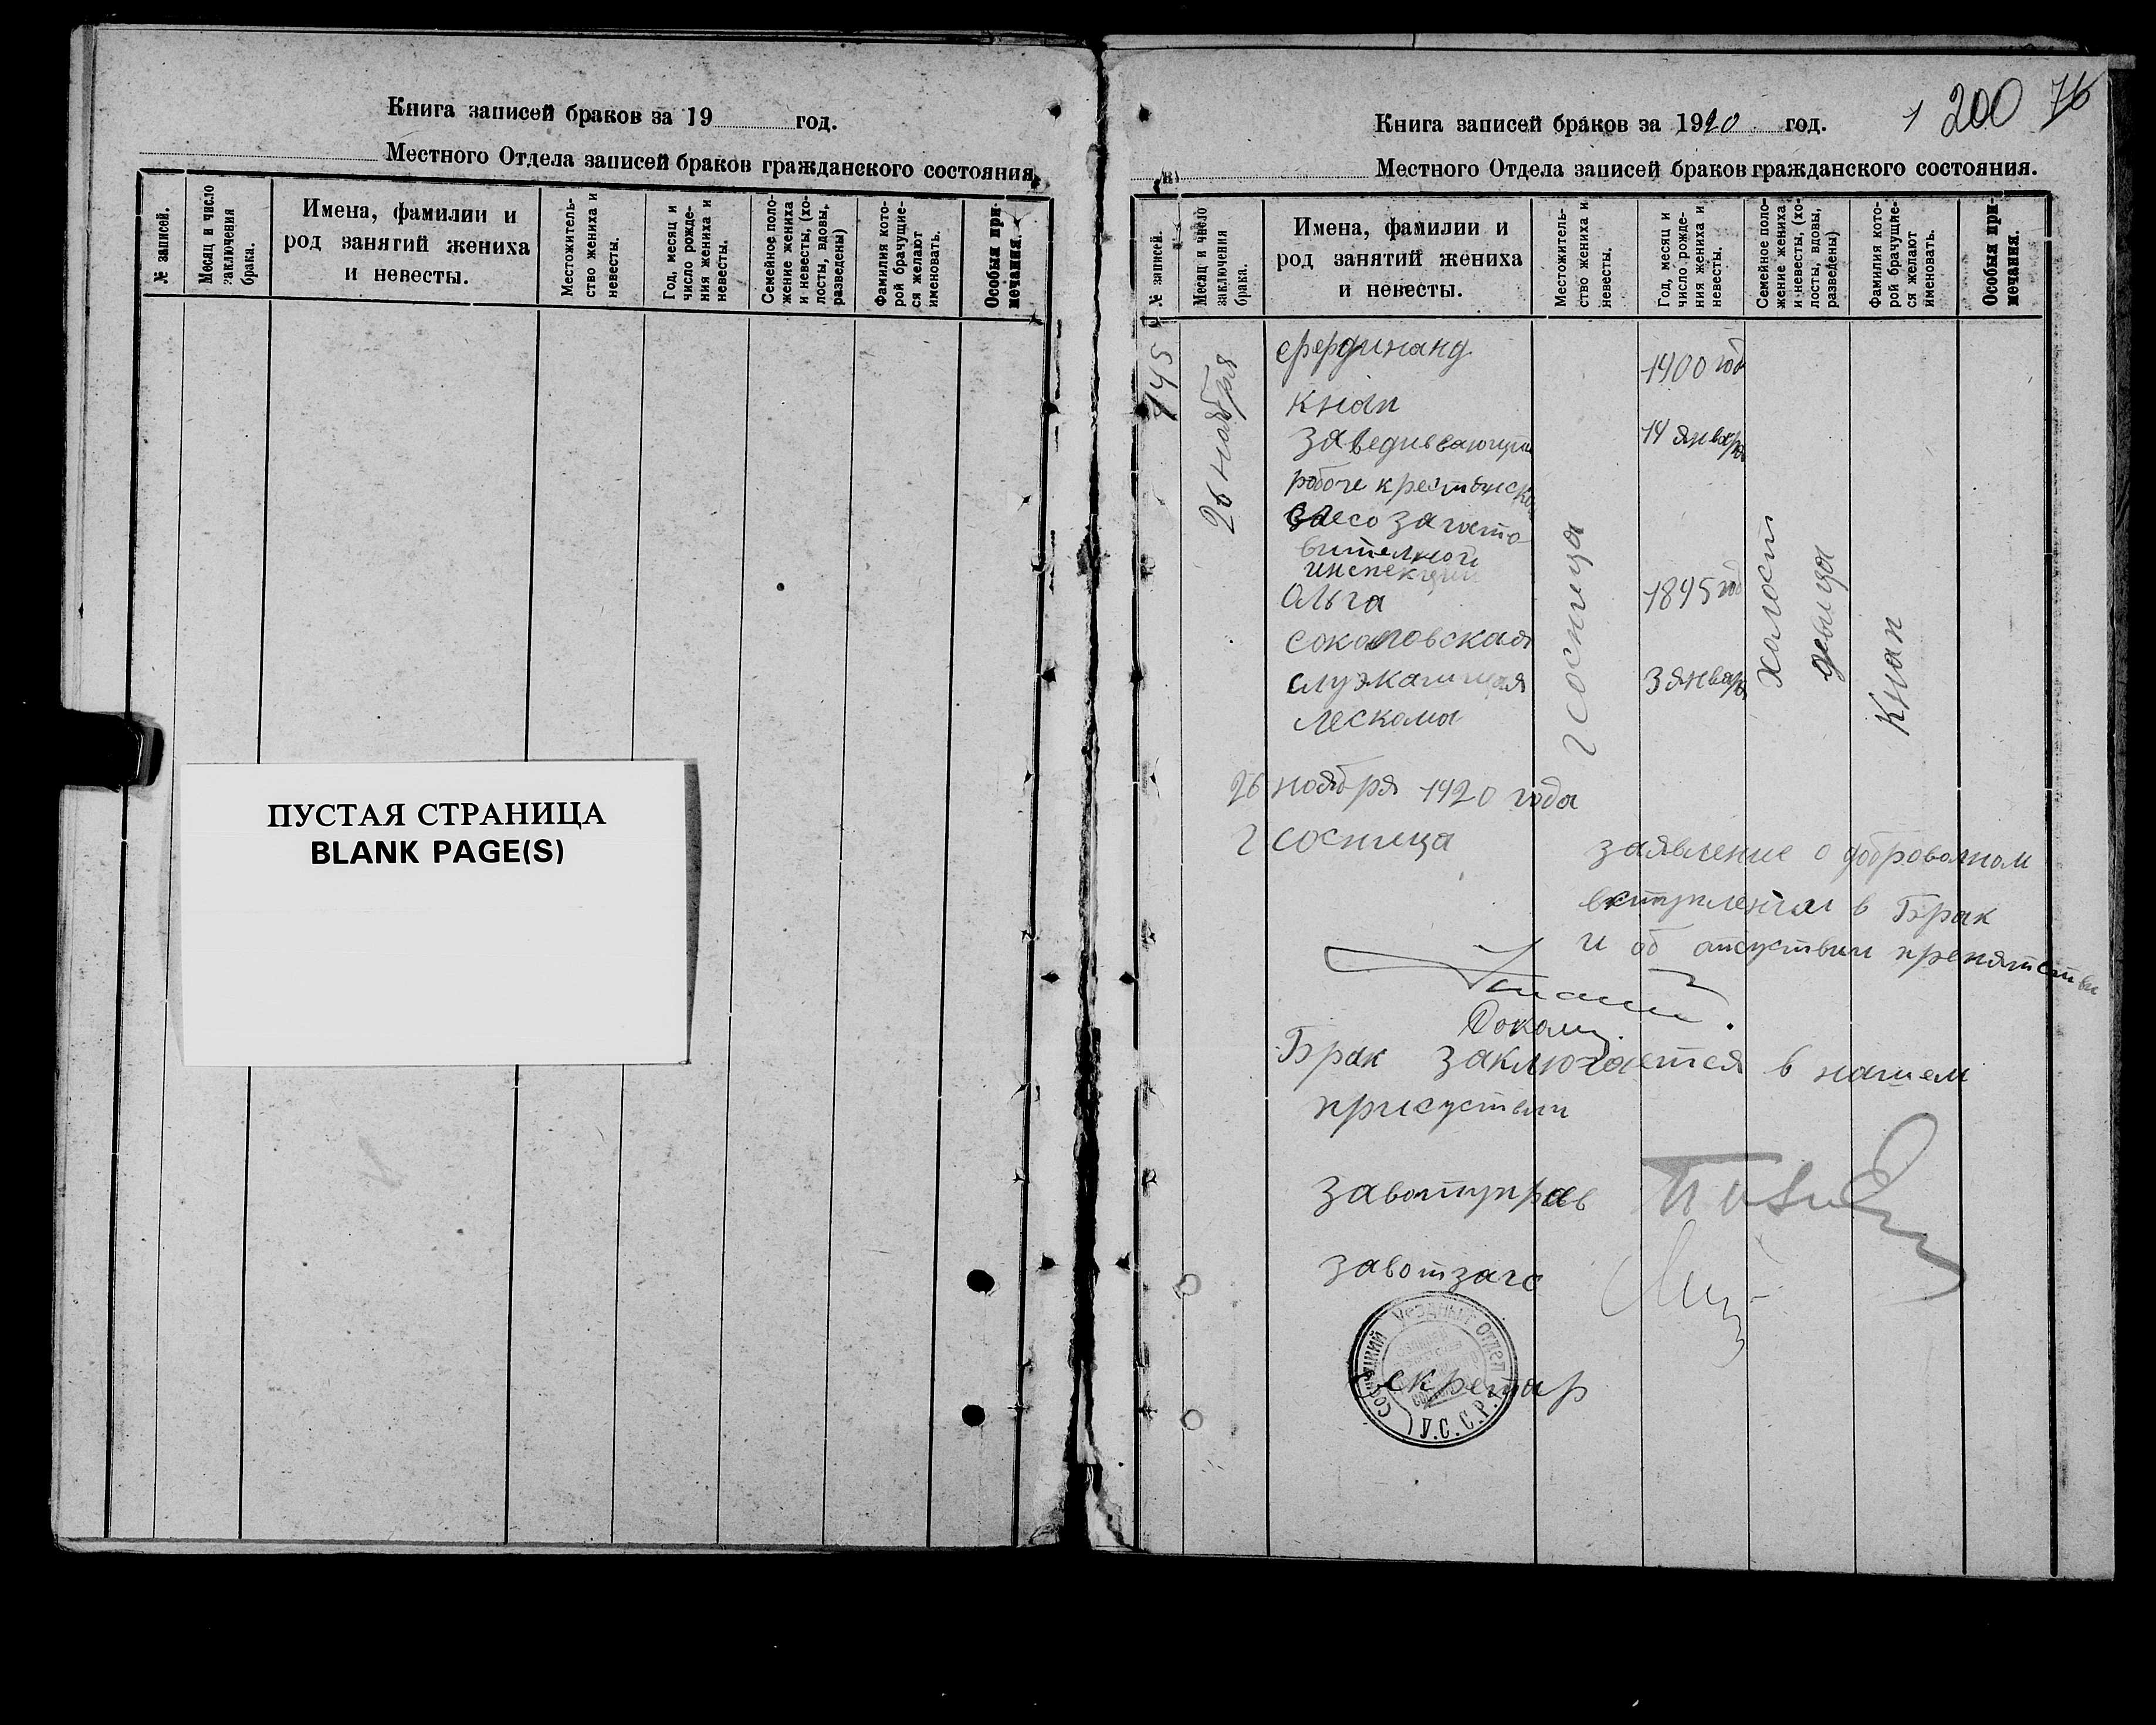 Книга записей браков за 19 год.
Местного Отдела записей браков гражданского состояния.
№ записей.
Месяц и число
заключения
брака.
Имена, фамилии и
род занятий жениха
и невесты.
Местожитель-
ство жениха и
невесты.
Год, месяц и
число рожде-
ния жениха и
невесты.
Семейное поло-
жение жениха
и невесты, (хо-
лосты, вдовы,
разведены)
Фамилия кото-
рой брачущие-
ся желают
именовать.
Особыя при-
мечания.
ПУСТАЯ СТРАНИЦА
BLANK PAGE(S)
200 76
Книга записей браков за 1920 год.
Местного Отдела записей браков гражданского состояния.
№ записей.
Месяц и число
заключения
брака.
Имена, фамилии и
род занятий жениха
и невесты.
Местожитель-
ство жениха и
невесты.
Год, месяц и
число рожде-
ния жениха и
невесты.
Семейное поло-
жение жениха
и невесты, (хо-
лосты, вдовы,
разведены)
Фамилия кото-
рой брачущие-
ся желают
именовать.
Особыя при-
мечания.
26 ноября
Фердинанд
Кнап
заведивающи
рабоче крестянско
лесо загото
вителной
инспекции
Ольга
Соколовская
служащая
лескома
г Сосница
1900 год
14 январ
1895 год
3 январ
холост
девица
Кнап
26 ноября 1920 года
г Сосница
заявление о добровольном
вступлении в Брак
и об отсуствии препятстви
Брак заключается в нашем
присуствии
Завотуправ
Завотзагс
Секретар
СОСНИЦКИЙ УЕЗДНЫЙ ОТДЕЛ
У.С.С.Р.